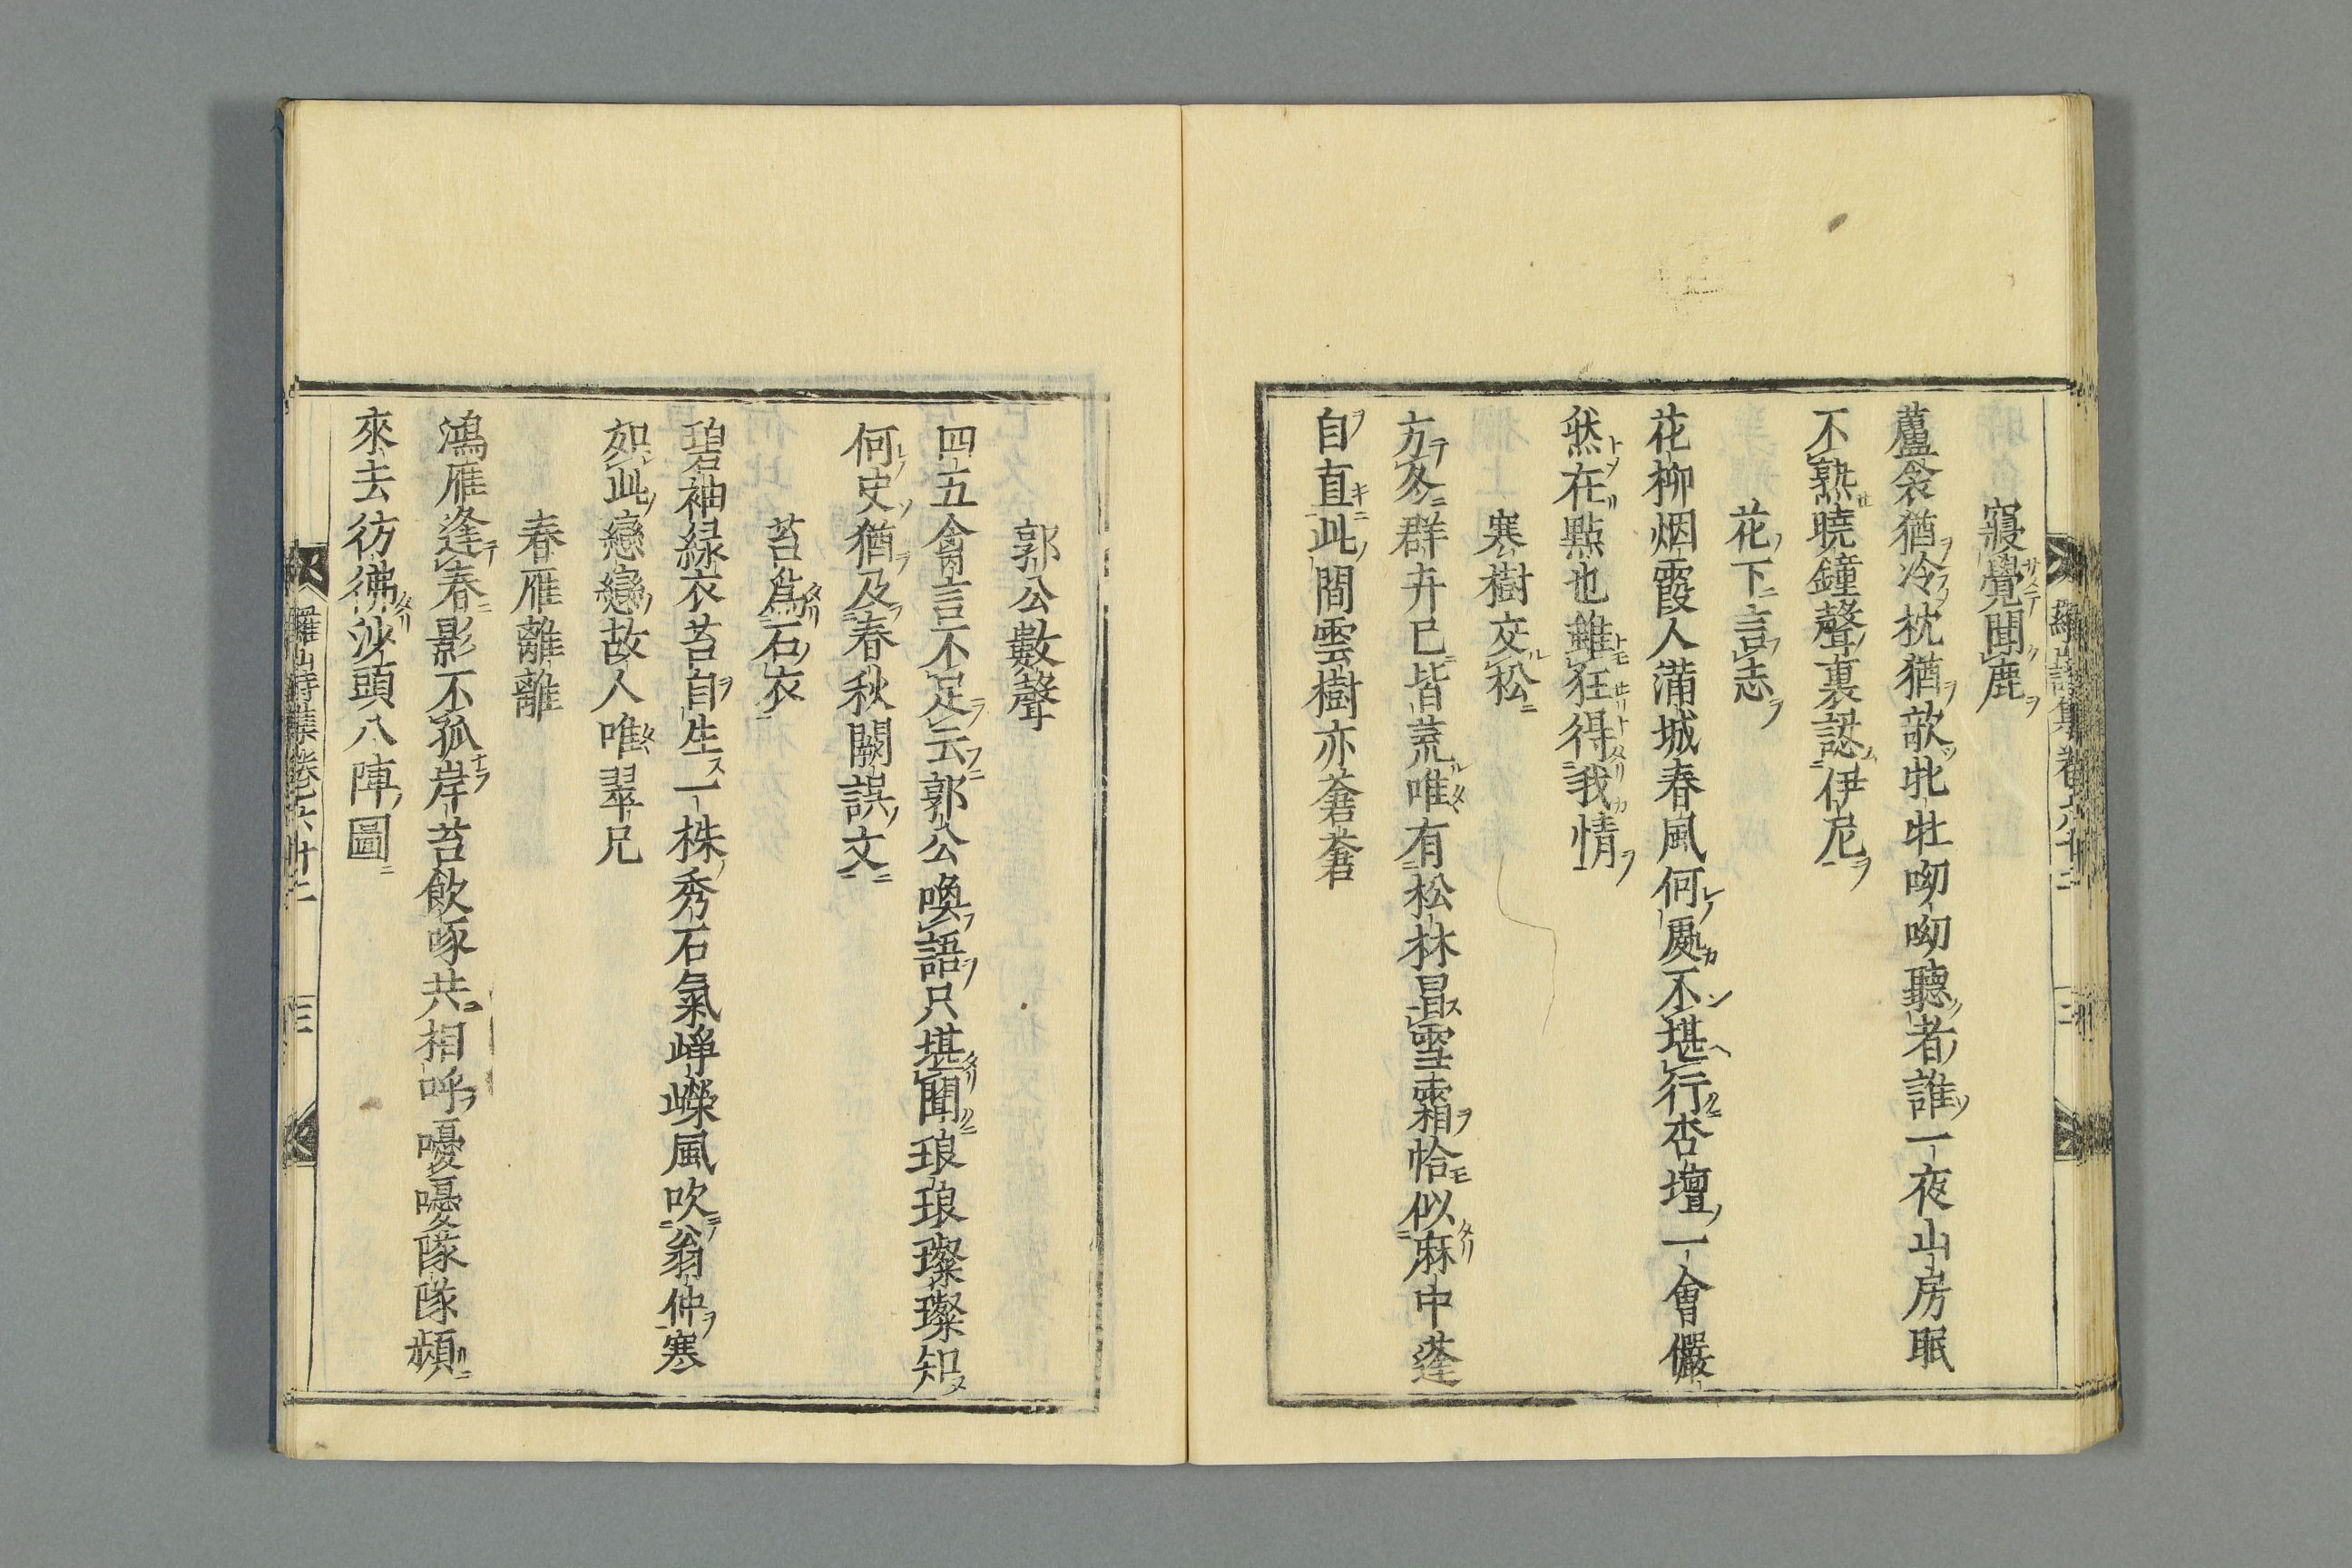 寢覺聞鹿
蘆衾猶冷枕猶欹牝牡呦呦聽者誰一夜山房眠
不熟曉鐘聲裏認伊尼
花下言志
花柳烟霞人滿城春風何處不堪行杏壇一會儼
然在點也雖狂得我情
寒樹交松
方冬群卉已皆荒唯有松林冒雪霜恰似麻中蓬
自直此間雲樹亦蒼蒼
郭公數聲
四五禽言不足云郭公喚語只堪聞琅琅璨璨知
何史猶及春秋闕誤文
苔爲石衣
碧袖緑衣苔自生一株秀石氣崢嶸風吹翁仲寒
如此戀戀故人唯翠兄
春雁離離
鴻雁逢春影不孤岸苔飲啄共相呼嚘嚘隊隊頻
來去彷彿沙頭八陣圖
羅山詩集卷六十二
三